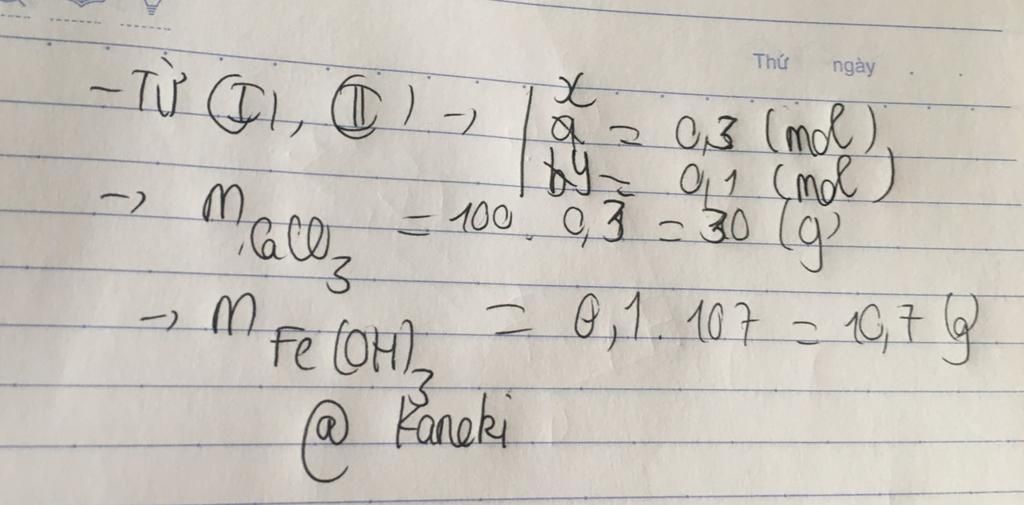 Thứ ngày . .
- Từ (I), (II) → | x = 0,3 (mol)
y = 0,1 (mol)
→ mCaCO3 = 100 . 0,3 = 30 (g)
→ mFe(OH)3 = 0,1 . 107 = 10,7 (g)
@ Kaneki